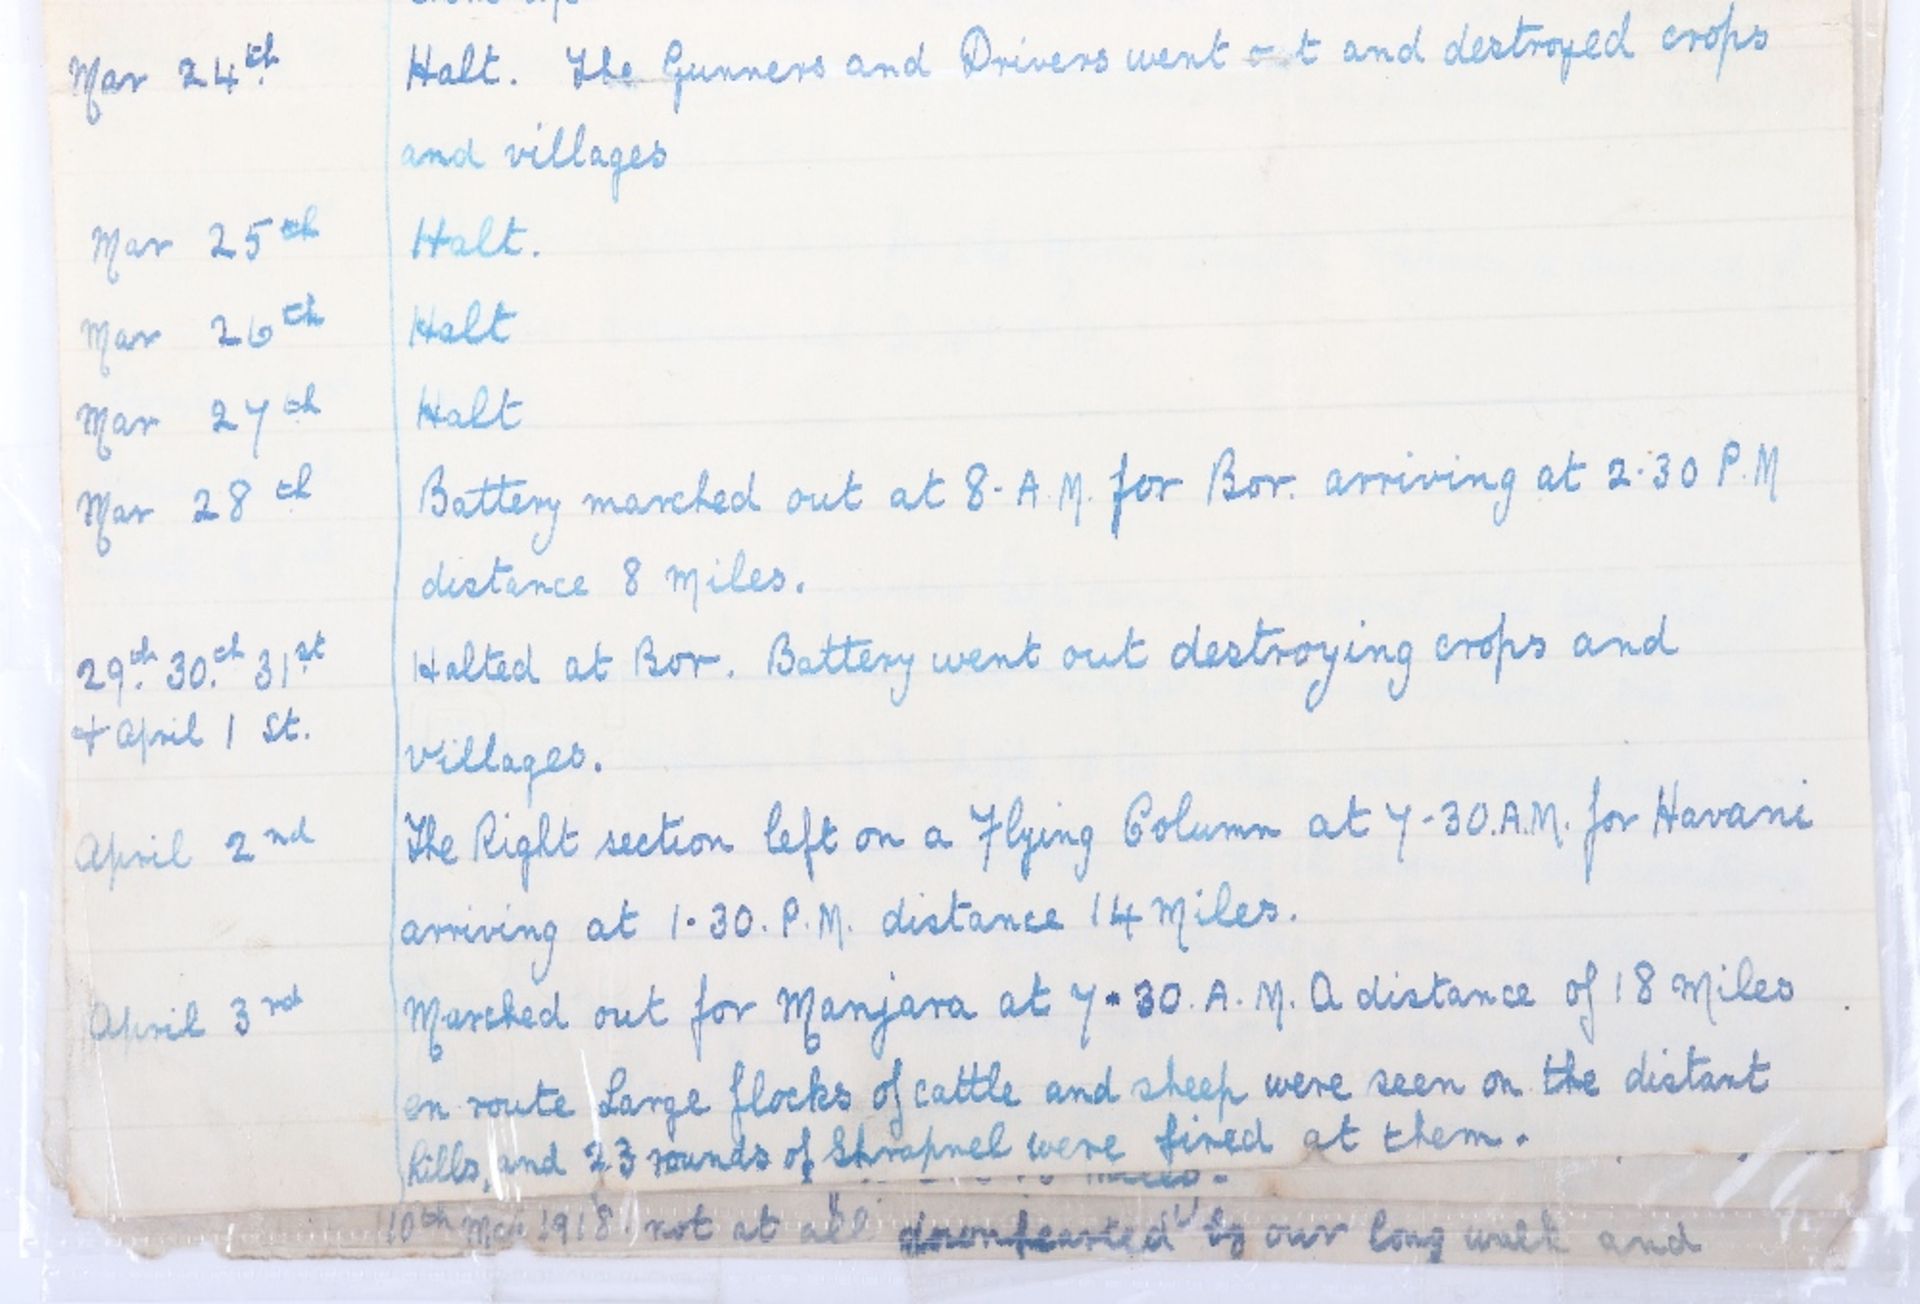 Mar 24th. Halt. The Gunners and Drivers went out and destroyed crops
and villages
Mar 25th Halt.
Mar 26th Halt
Mar 27th Halt
Mar 28th Battery marched out at 8-A.M. for Bor. arriving at 2.30 P.M
distance 8 Miles.
29th. 30th. 31st Halted at Bor. Battery went out destroying crops and
+ April 1 St. Villages.
April 2nd The Right section left on a Flying Column at 7-30.A.M. for Havani
arriving at 1.30. P.M. distance 14 Miles.
April 3rd Marched out for Manjara at 7.30. A.M. A distance of 18 Miles
en route Large flocks of cattle and sheep were seen on the distant
hills, and 23 rounds of Shrapnel were fired at them.
miles.
10th Mar 1918. not at all "downhearted" by our long walk and